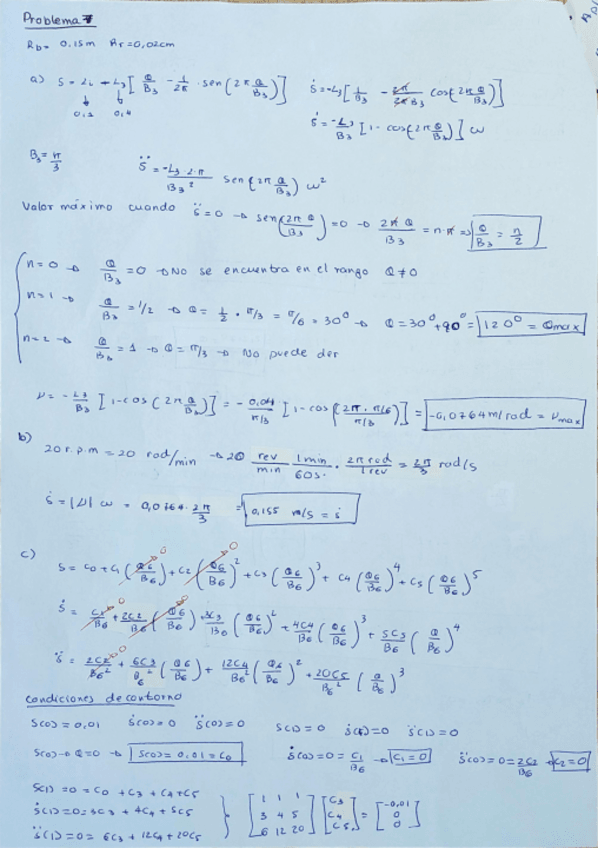 Problema 7
Rb= 0.15m Rr=0,02cm
a) S = L1 - L3 [ θ/B3 - 1/2π · sen(2π θ/B3) ]
ṡ = -L3 [ 1/B3 - 2π/2πB3 cos(2π θ/B3) ]
ṡ = -L3/B3 [ 1 - cos(2π θ/B3) ] ω
B3 = π/3
s̈ = -L3·2·π/B3² sen(2π θ/B3) ω²
Valor máximo cuando s̈ = 0 → sen(2π θ/B3) = 0 → 2π θ/B3 = n·π ⇒ θ/B3 = n/2
n=0 → θ/B3 = 0 → No se encuentra en el rango θ≠0
n=1 → θ/B3 = 1/2 → θ = 1/2 · π/3 = π/6 = 30° → θ = 30° + 90° = 120° = θmax
n=2 → θ/B3 = 1 → θ = π/3 → No puede der
ν = -L3/B3 [1-cos(2π θ/B3)] = - 0,04/π/3 [1-cos(2π·π/6/π/3)] = -0,0764 m/rad = νmax
b)
20 r.p.m = 20 rad/min → 20 rev/min 1min/60s · 2π rad/1 rev = 2π/3 rad/s
ṡ = |ν| ω = 0,0764 · 2π/3 = 0,155 m/s = ṡ
c)
S = C0 + C1 (θ6/B6) + C2 (θ6/B6)² + C3 (θ6/B6)³ + C4 (θ6/B6)⁴ + C5 (θ6/B6)⁵
ṡ = C1/B6 + 2C2/B6 (θ6/B6) + 3C3/B6 (θ6/B6)² + 4C4/B6 (θ6/B6)³ + 5C5/B6 (θ/B6)⁴
s̈ = 2C2/B6² + 6C3/B6² (θ6/B6) + 12C4/B6² (θ6/B6)² + 20C5/B6² (θ/B6)³
condiciones de contorno
S(0) = 0,01 ṡ(0) = 0 s̈(0) = 0 S(1) = 0 ṡ(1) = 0 s̈(1) = 0
S(0) → θ=0 → S(0) = 0,01 = C0 ṡ(0) = 0 = C1/B6 → C1 = 0 s̈(0) = 0 = 2C2/B6 C2 = 0
S(1) = 0 = C0 + C3 + C4 + C5
ṡ(1) = 0 = 3C3 + 4C4 + 5C5
s̈(1) = 0 = 6C3 + 12C4 + 20C5
[1 1 1
3 4 5
6 12 20] [C3
C4
C5] = [-0,01
0
0]